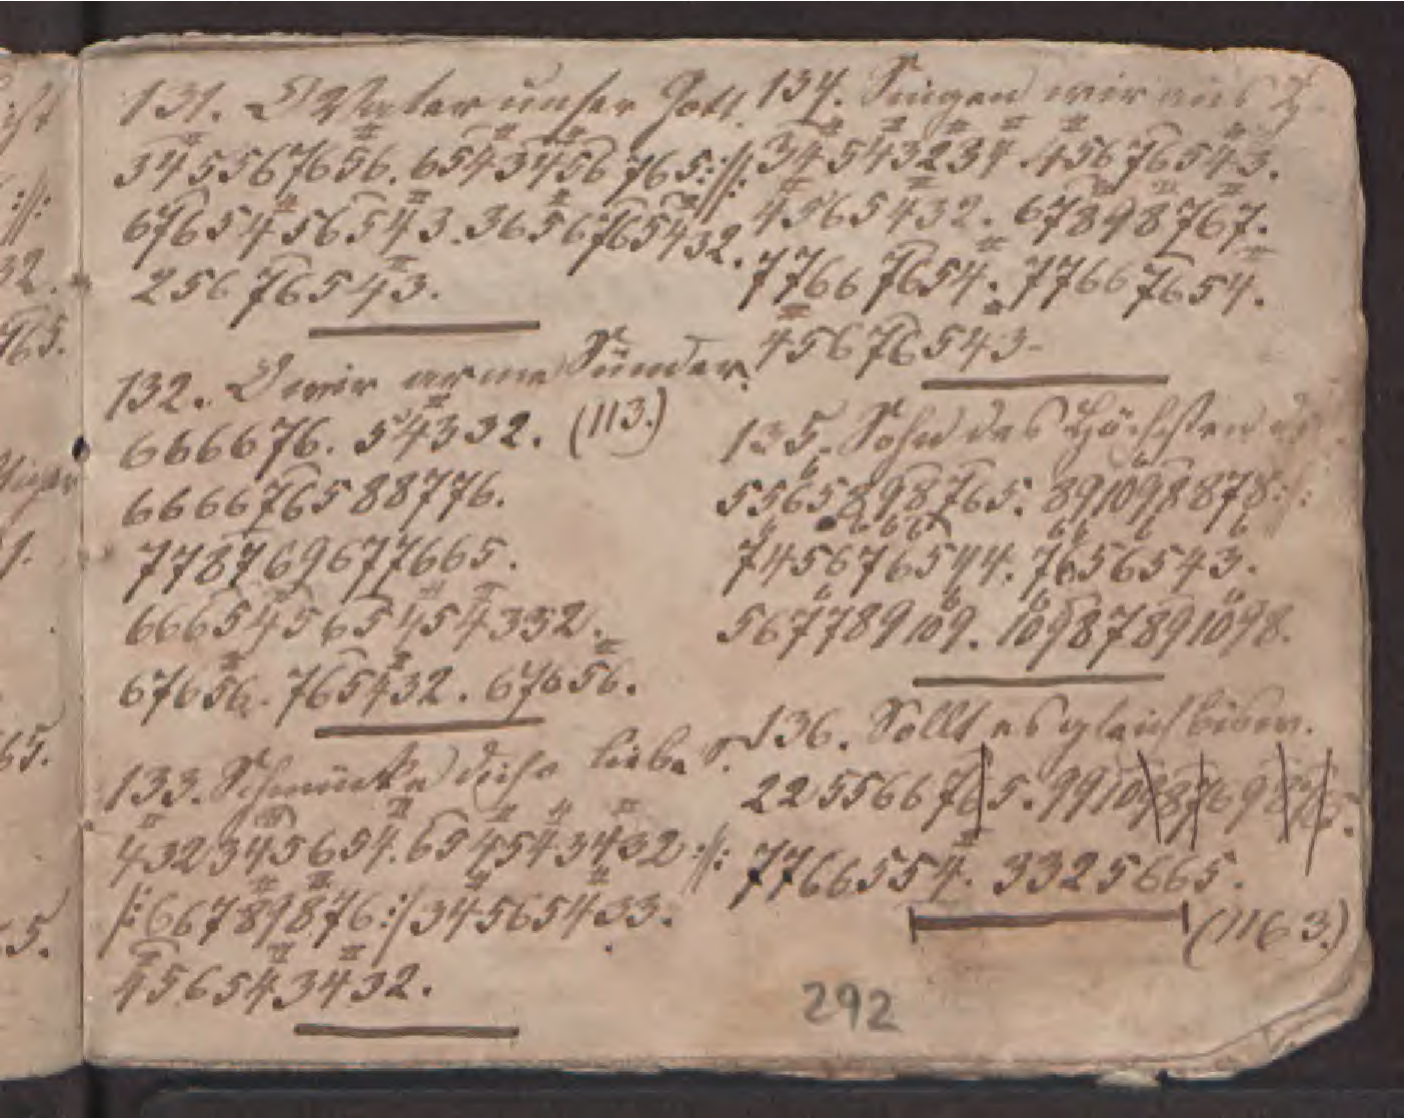 131. O Vater unser Gott.
3455567656. 65434567 65:||:
67654565 43. 36567654 32.
25676543.
132. O wir arme Sünder.
666676. 54332. (113.)
66667658 8776.
7787769677665.
6665456545 4332.
67656. 765432. 67656.
133. Schmücke dich liebe S.
43234565 4. 65454 3432:||:
|:66789876:| 34565433.
456543432.
134. Singen wir aus H
345432 34. 456 76543.
4565432. 67898767.
77667654. 77667654.
45676543.
135. Sohn des Höchsten
5565898765. 89109 8878:|:
7456765 44. 7656543.
567789109. 109878910 98.
136. Sollt es gleich bisw.
225566765. 9910987698 76.
7766554. 3325665.
(116 3.)
292